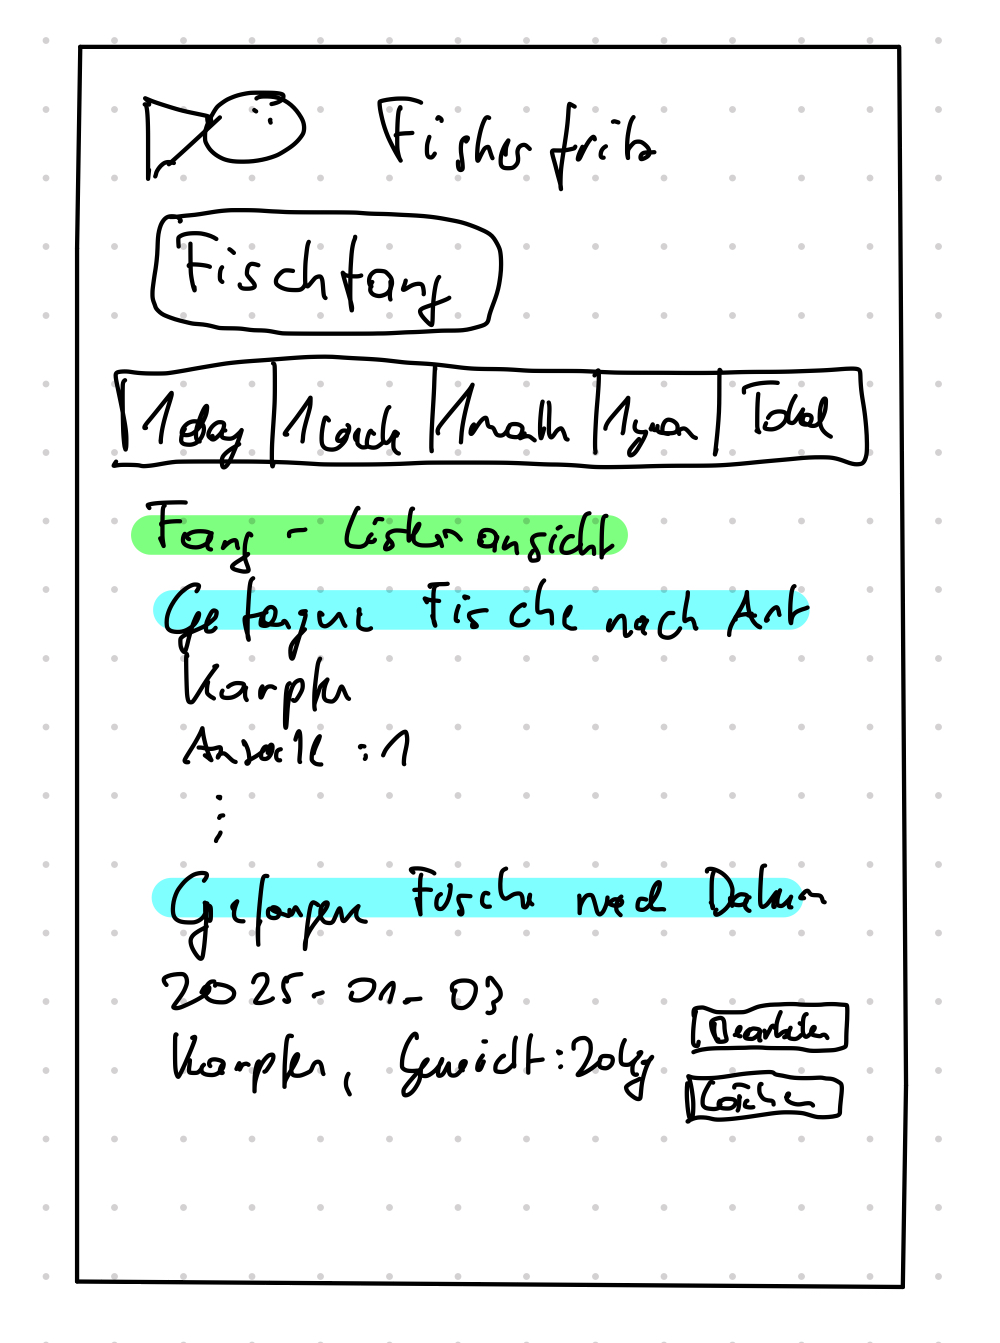 Fisherfritz
Fischfang
1 day 1 week 1 month 1 year Total
Fang - Listenansicht
Gefangene Fische nach Art
Karpfen
Anzahl : 1
:
Gefangene Fische nach Datum
2025-01-03
Karpfen, Gewicht: 20kg
Bearbeiten
Löschen